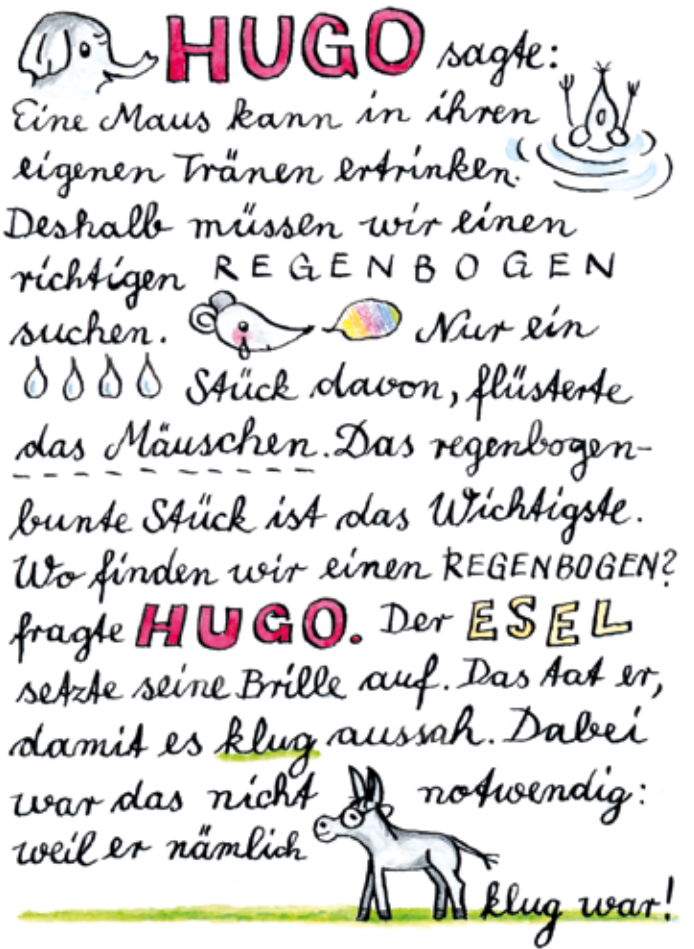 HUGO sagte:
Eine Maus kann in ihren
eigenen Tränen ertrinken.
Deshalb müssen wir einen
richtigen REGENBOGEN
suchen. Nur ein
Stück davon, flüsterte
das Mäuschen. Das regenbogen-
bunte Stück ist das Wichtigste.
Wo finden wir einen REGENBOGEN?
fragte HUGO. Der ESEL
setzte seine Brille auf. Das tat er,
damit es klug aussah. Dabei
war das nicht notwendig:
weil er nämlich
klug war!